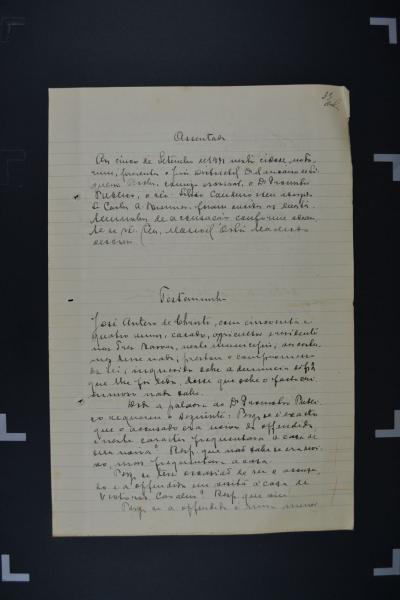 Assentada
Aos cinco de Setembro de 1931 nesta cidade,
rum, presentes o juiz
commigo escrivão, o Dr Promotor
Publico, o réo Candeiro
Carlos A. foram ouvidas as teste-
munhas de accusação conforme adean-
te se vê. Eu, Manoel
escrevi.
Testemunha
José Antero de Christo, com cincoenta e
quatro annos, casado, agricultor, residente
nas Tres Barras, neste municipio, aos costu-
mes disse nada; prestou o compromisso
da lei; inquirido sobre a denuncia de fls
que lhe foi lida, disse que sobre o facto cri-
minoso nada sabe.
Dada a palavra ao Dr Promotor Publi-
co requereu o seguinte: Perg. se é exacto
que o accusado era noivo da offendida
e neste caracter frequentava a casa de
sua noiva? Resp. que não sabe se era noi-
vo, mas frequentava a casa.
Perg. se teve occasião de ver o accusa-
do e a offendida em visita á casa de
Victorio Cordeiro? Resp. que sim
Perg. se a offendida é uma menor